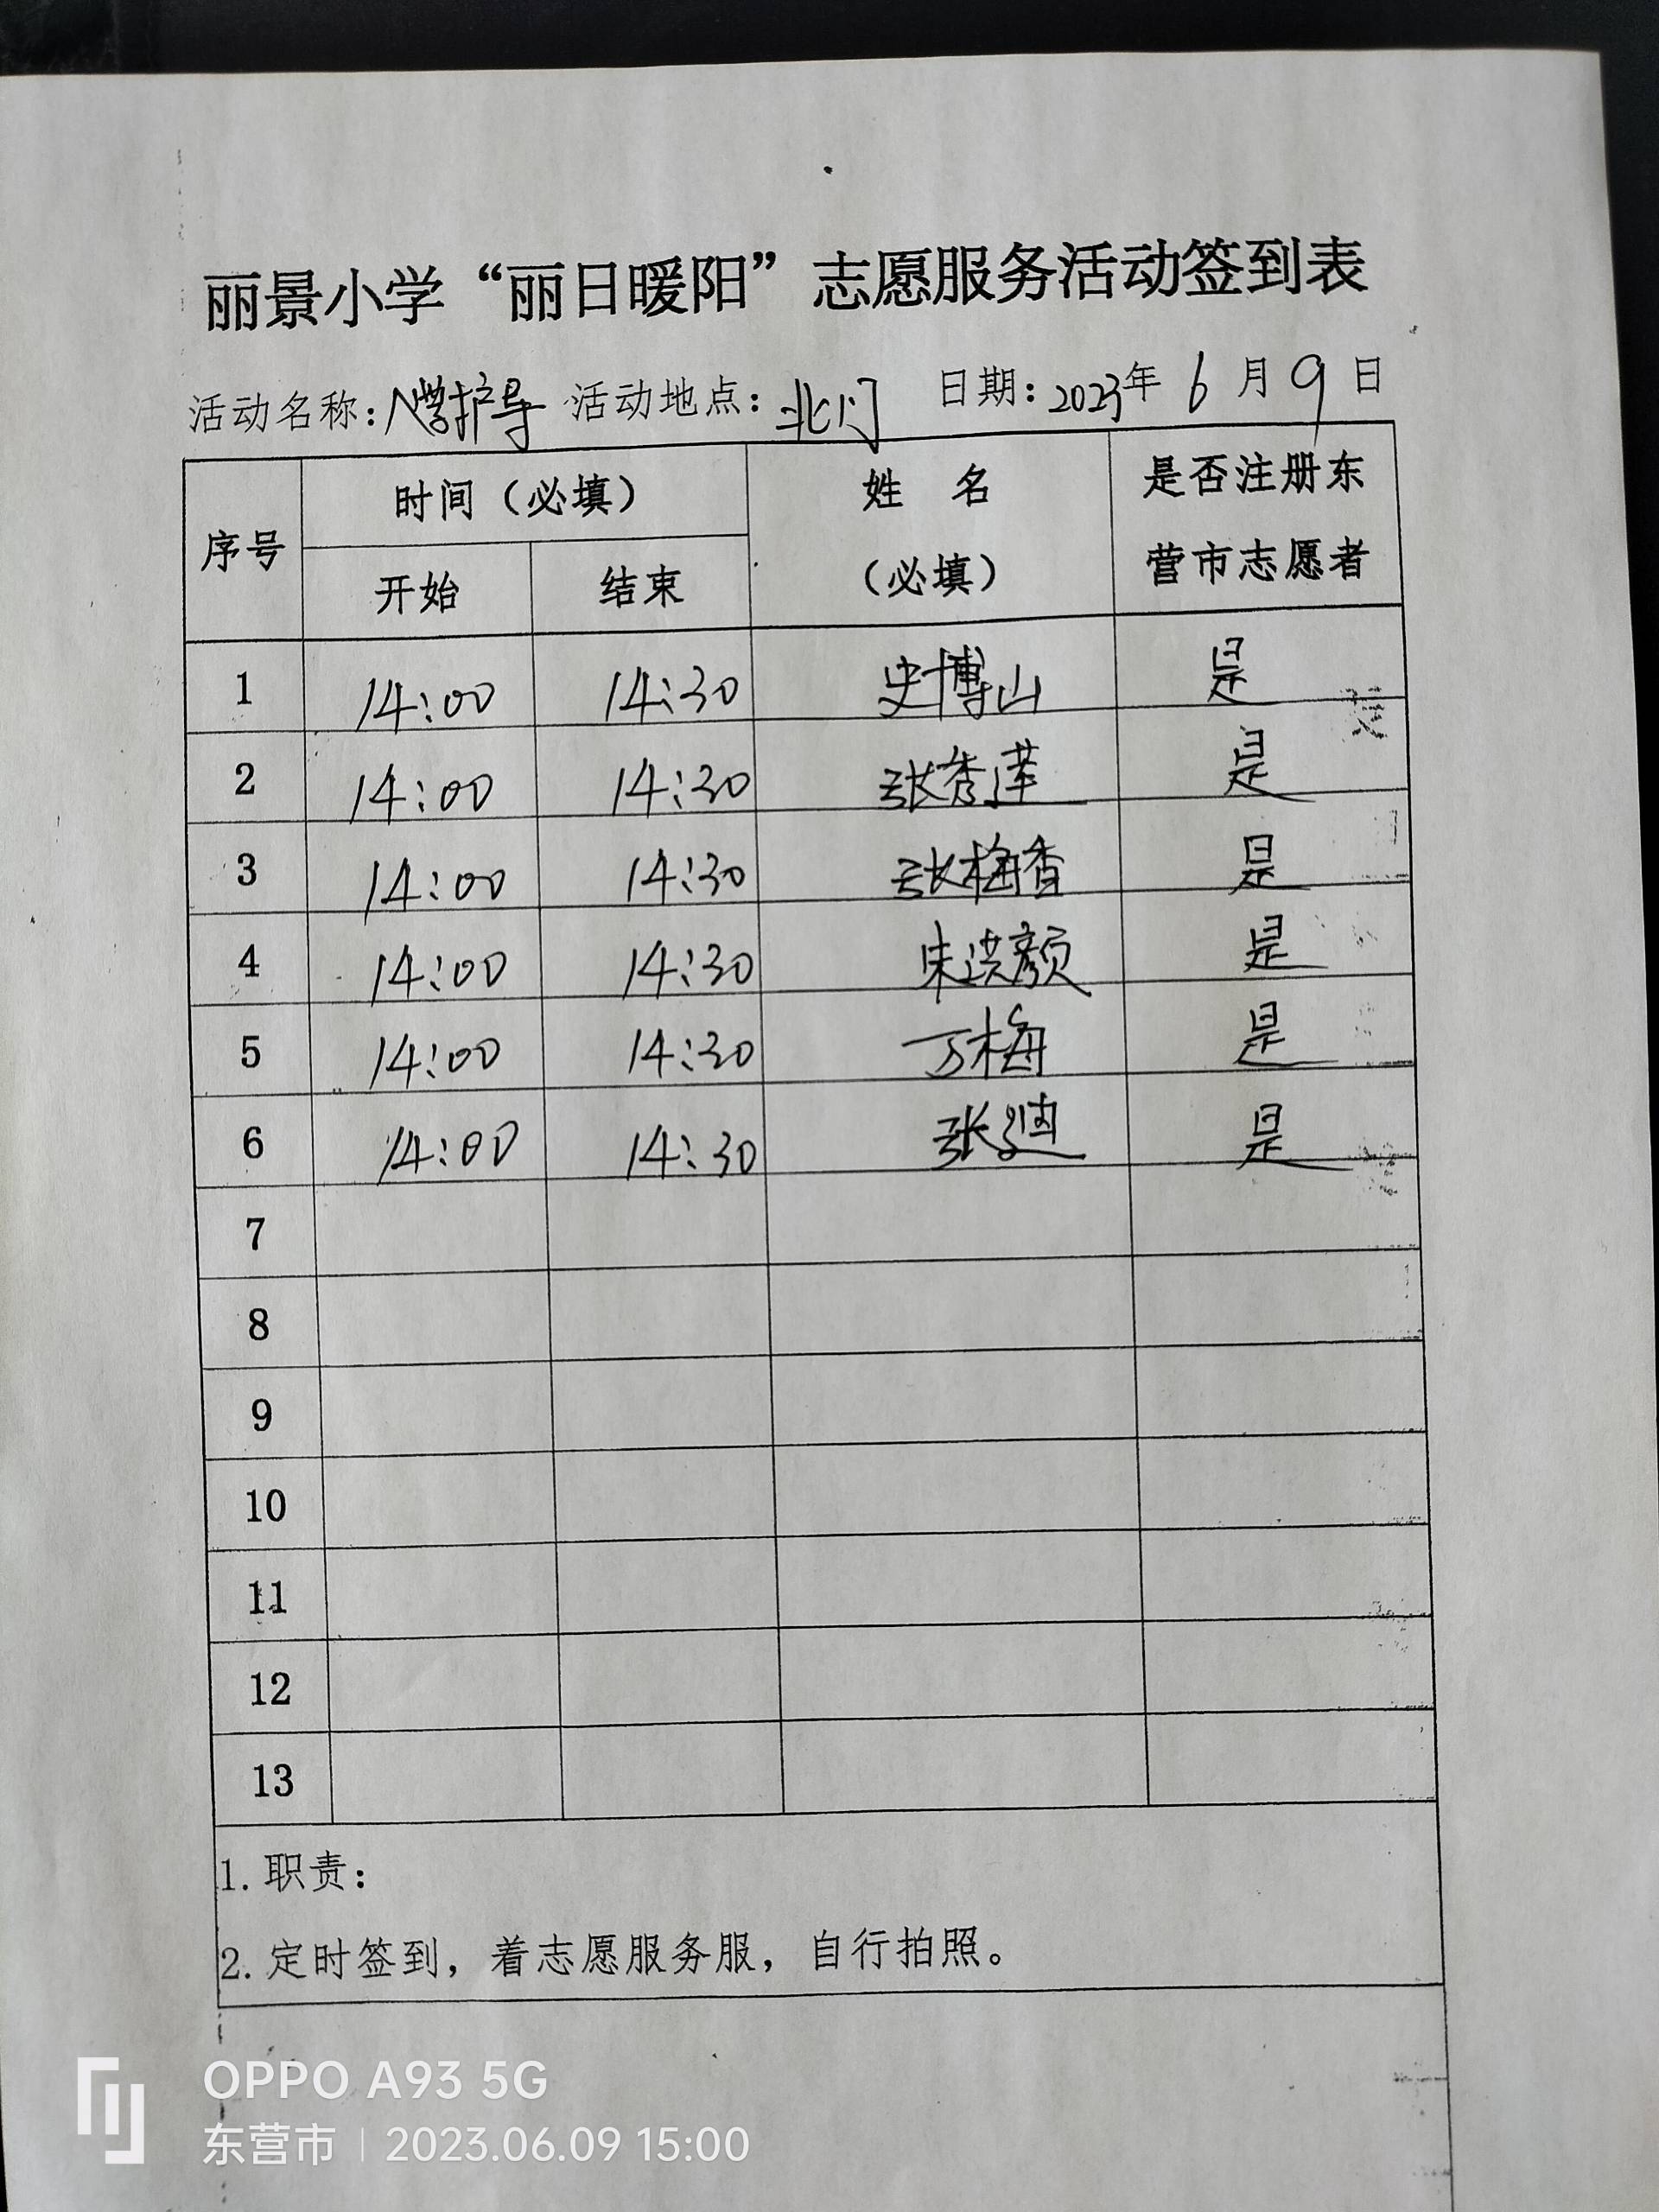 丽景小学“丽日暖阳”志愿服务活动签到表
活动名称：入学护导 活动地点：北门 日期：2023年 6 月 9 日
序号 时间（必填） 姓 名（必填） 是否注册东营市志愿者
开始 结束
1 14:00 14:30 史博山 是
2 14:00 14:30 张秀萍 是
3 14:00 14:30 张梅香 是
4 14:00 14:30 朱洪颜 是
5 14:00 14:30 万梅 是
6 14:00 14:30 张迪 是
7
8
9
10
11
12
13
1.职责：
2.定时签到，着志愿服务服，自行拍照。
OPPO A93 5G
东营市 | 2023.06.09 15:00